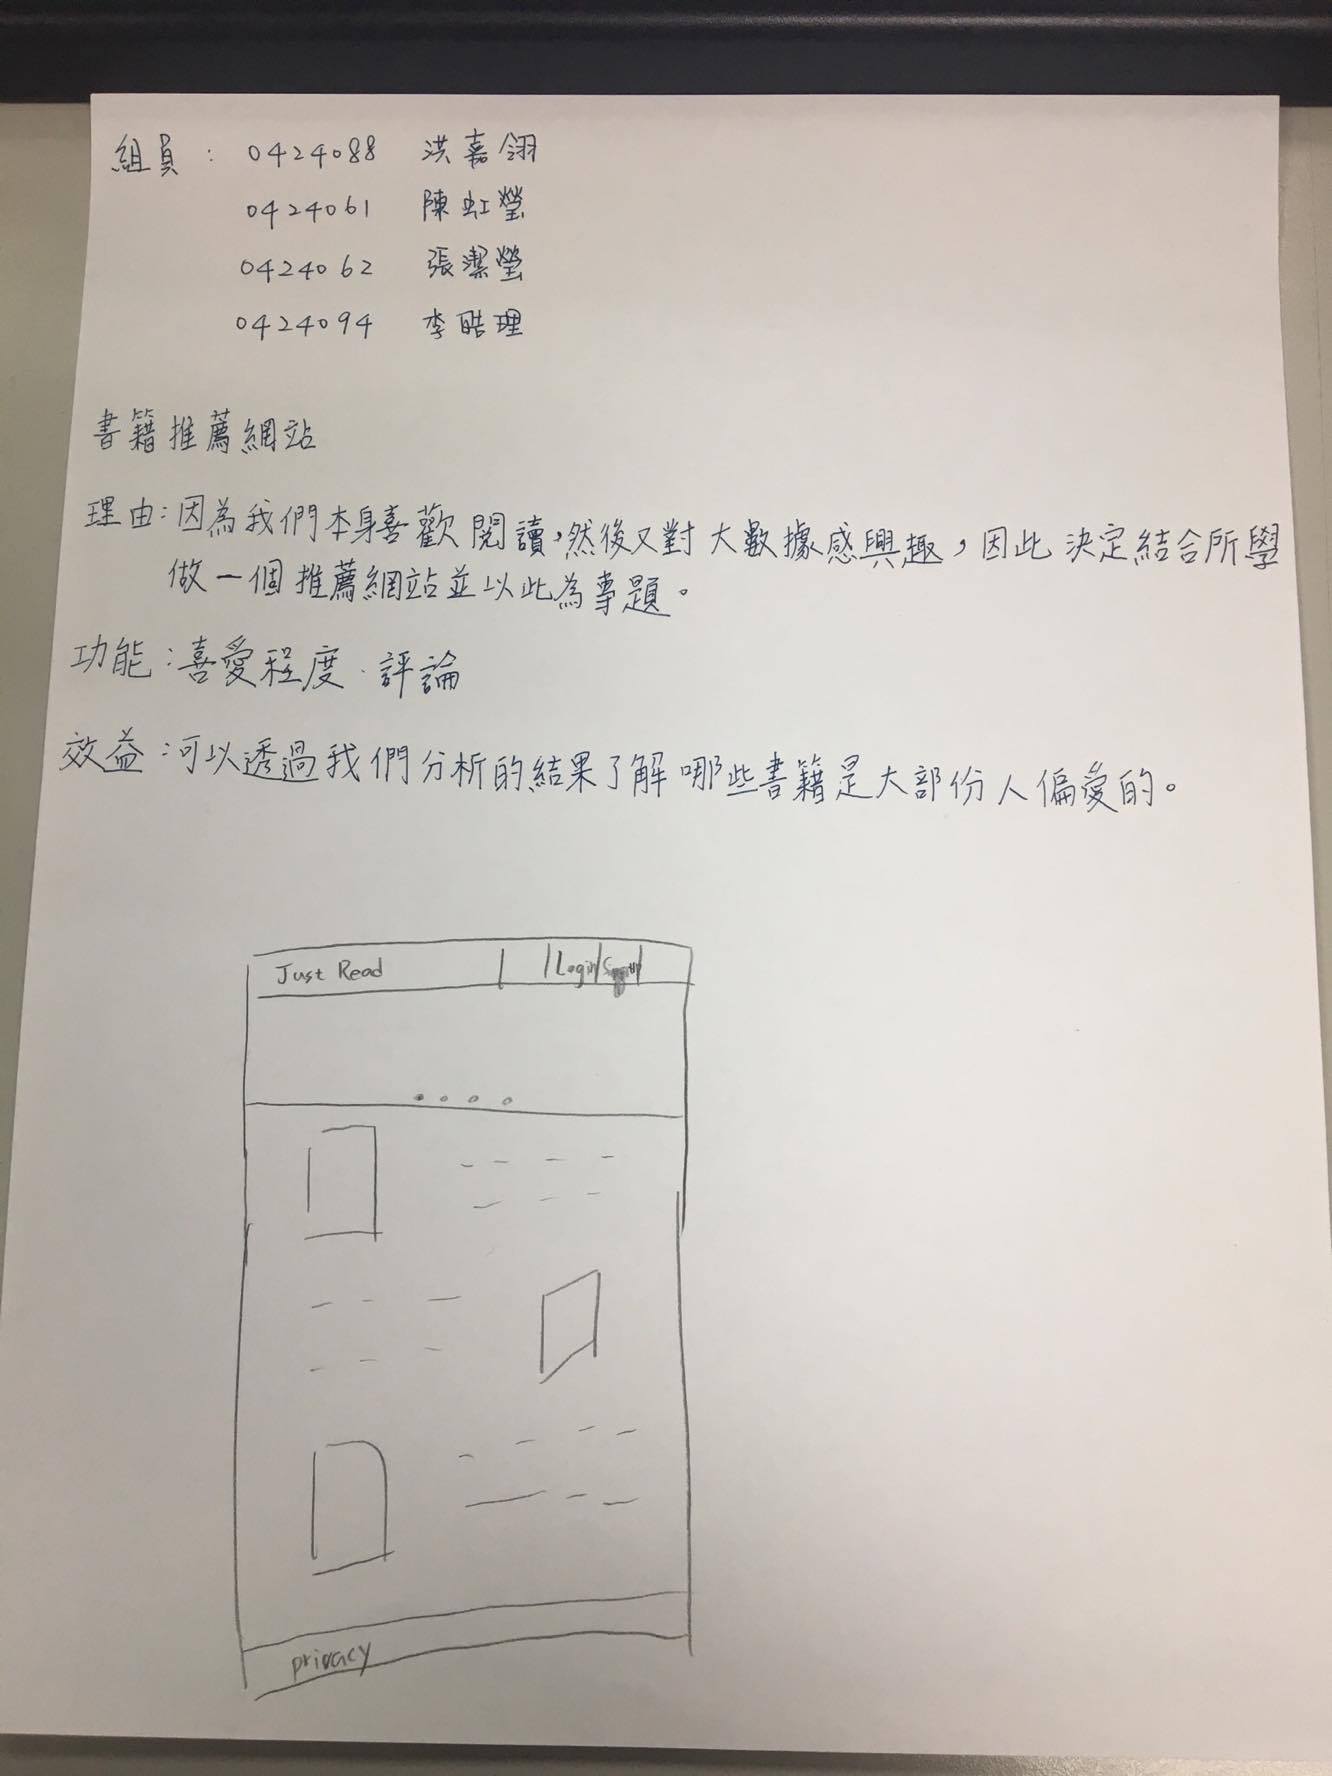 組員: 0424088 洪嘉翎
0424061 陳虹瑩
0424062 張潔瑩
0424094 李皓理
書籍推薦網站
理由:因為我們本身喜歡閱讀,然後又對大數據感興趣,因此決定結合所學
做一個推薦網站並以此為專題。
功能:喜愛程度、評論
效益:可以透過我們分析的結果了解哪些書籍是大部份人偏愛的。
Just Read Login
privacy